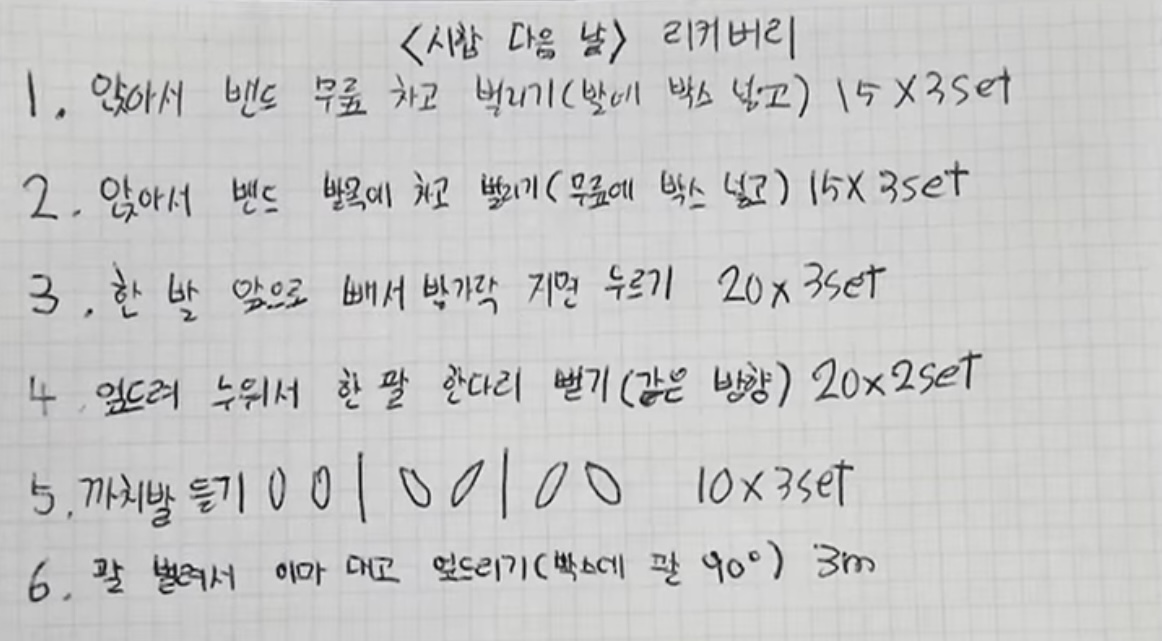 <시합 다음 날> 리커버리
1. 앉아서 밴드 무릎 차고 벌리기(발에 박스 넣고) 15X3set
2. 앉아서 밴드 발목에 차고 벌리기(무릎에 박스 넣고) 15X3set
3. 한 발 앞으로 빼서 발가락 지면 누르기 20x3set
4. 엎드려 누워서 한 팔 한다리 뻗기(같은 방향) 20x2set
5. 까치발 들기 00|00|00 10x3set
6. 팔 벌려서 이마 대고 엎드리기(박스에 팔 90°) 3m